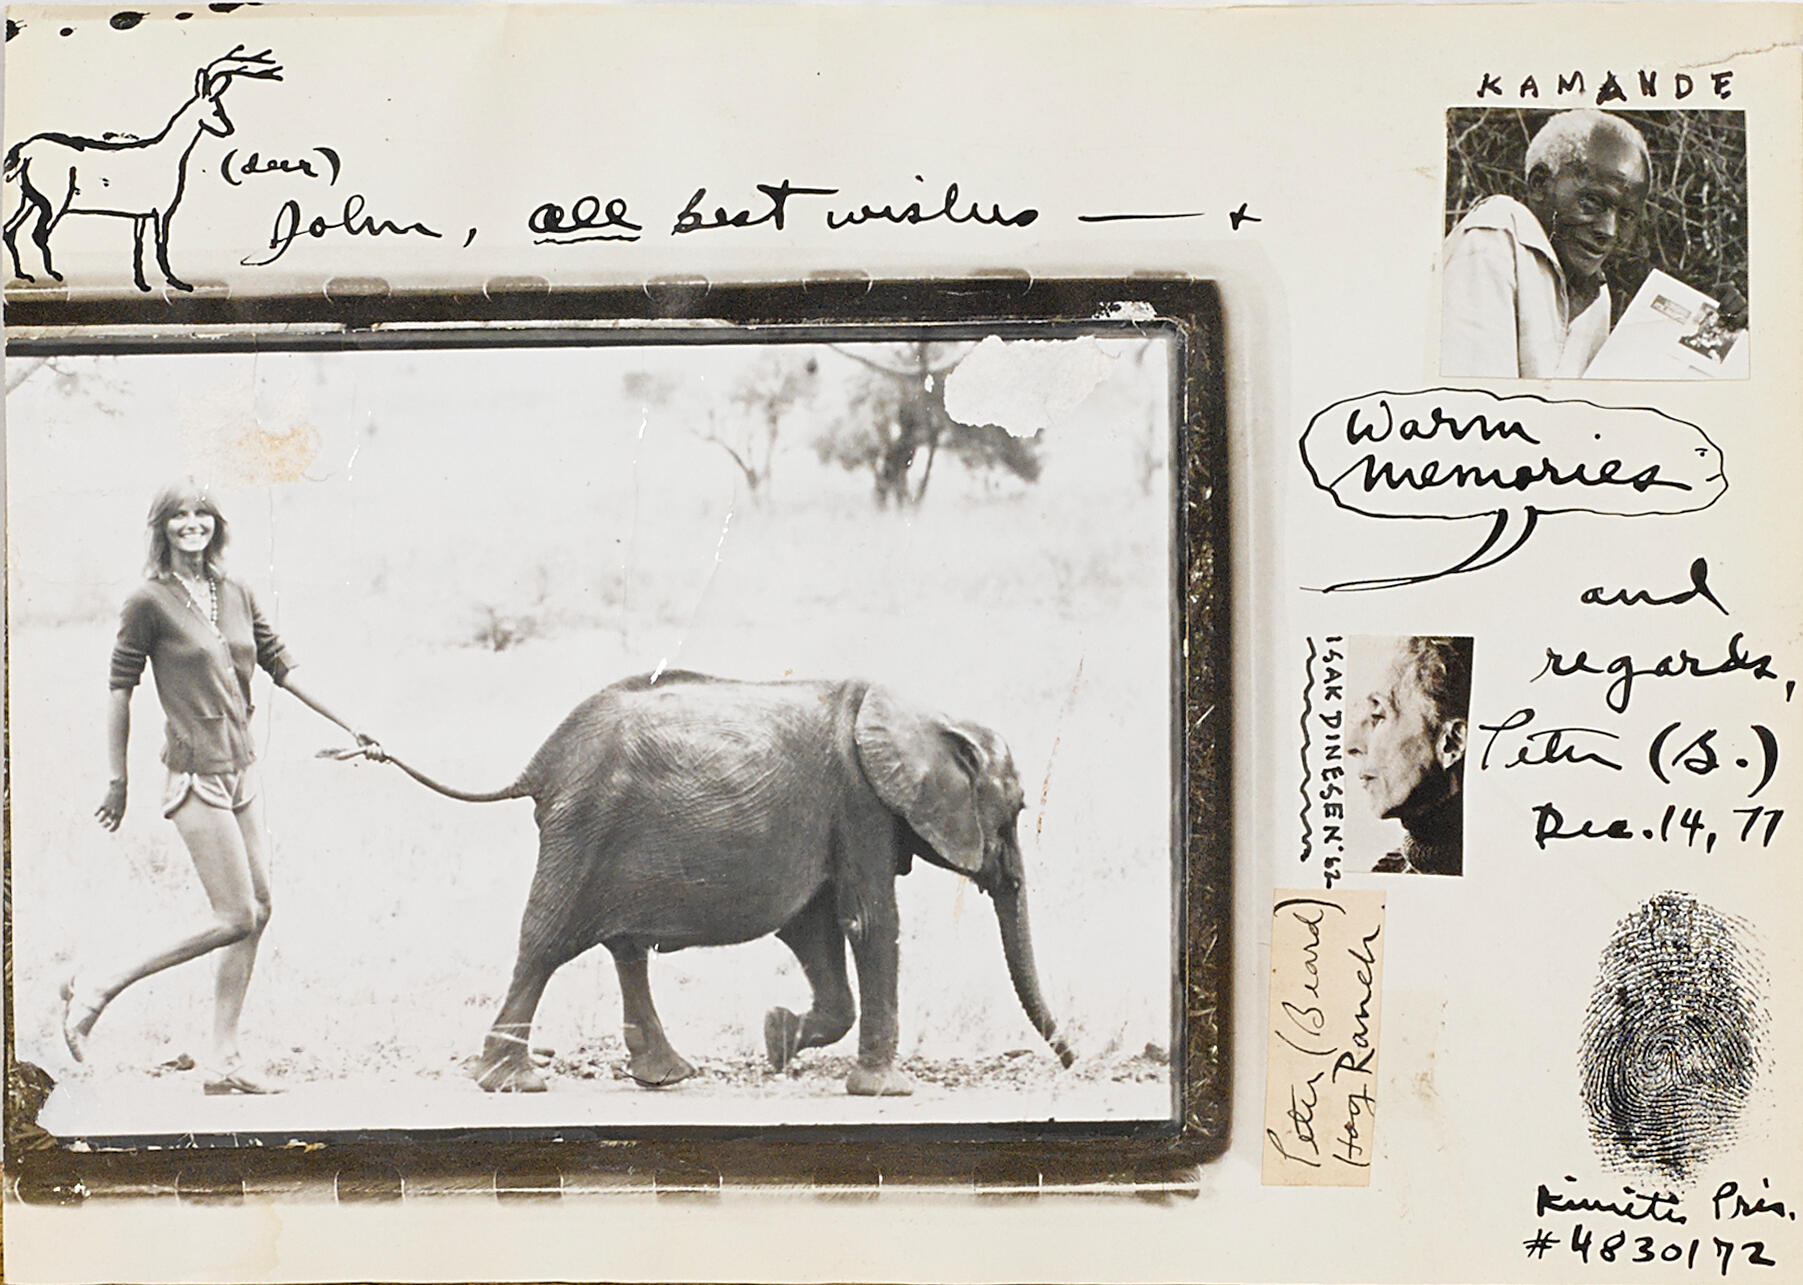 (deer)
John, all best wishes — +
KAMANDE
Warm
memories
and
regards,
Peter (B.)
Dec. 14, 77
ISAK DINESEN '62
Peter (Beard)
Hog Ranch.
Kimiti Pris.
#4830172